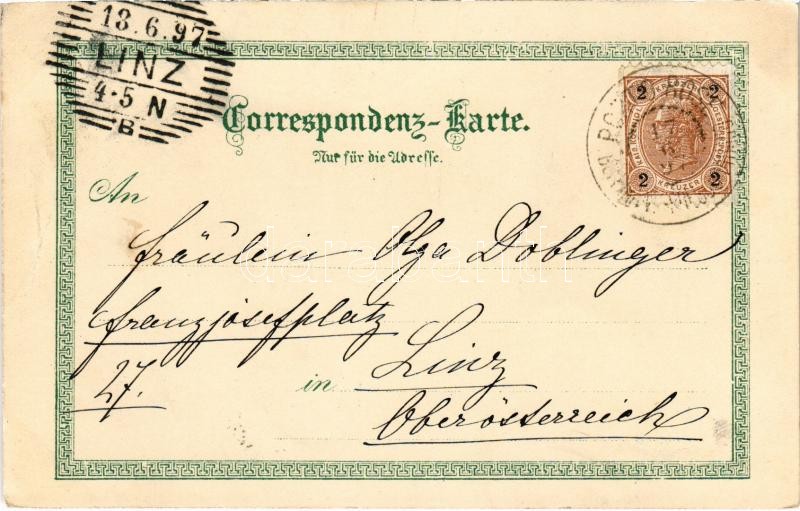 18.6.97
LINZ
4-5 N
B
Correspondenz-Karte.
Nur für die Adresse.
2 2
2 KREUZER 2
An
Fräulein Olga Doblinger
Franzjosefplatz
27.
in Linz
Oberösterreich
darabanth